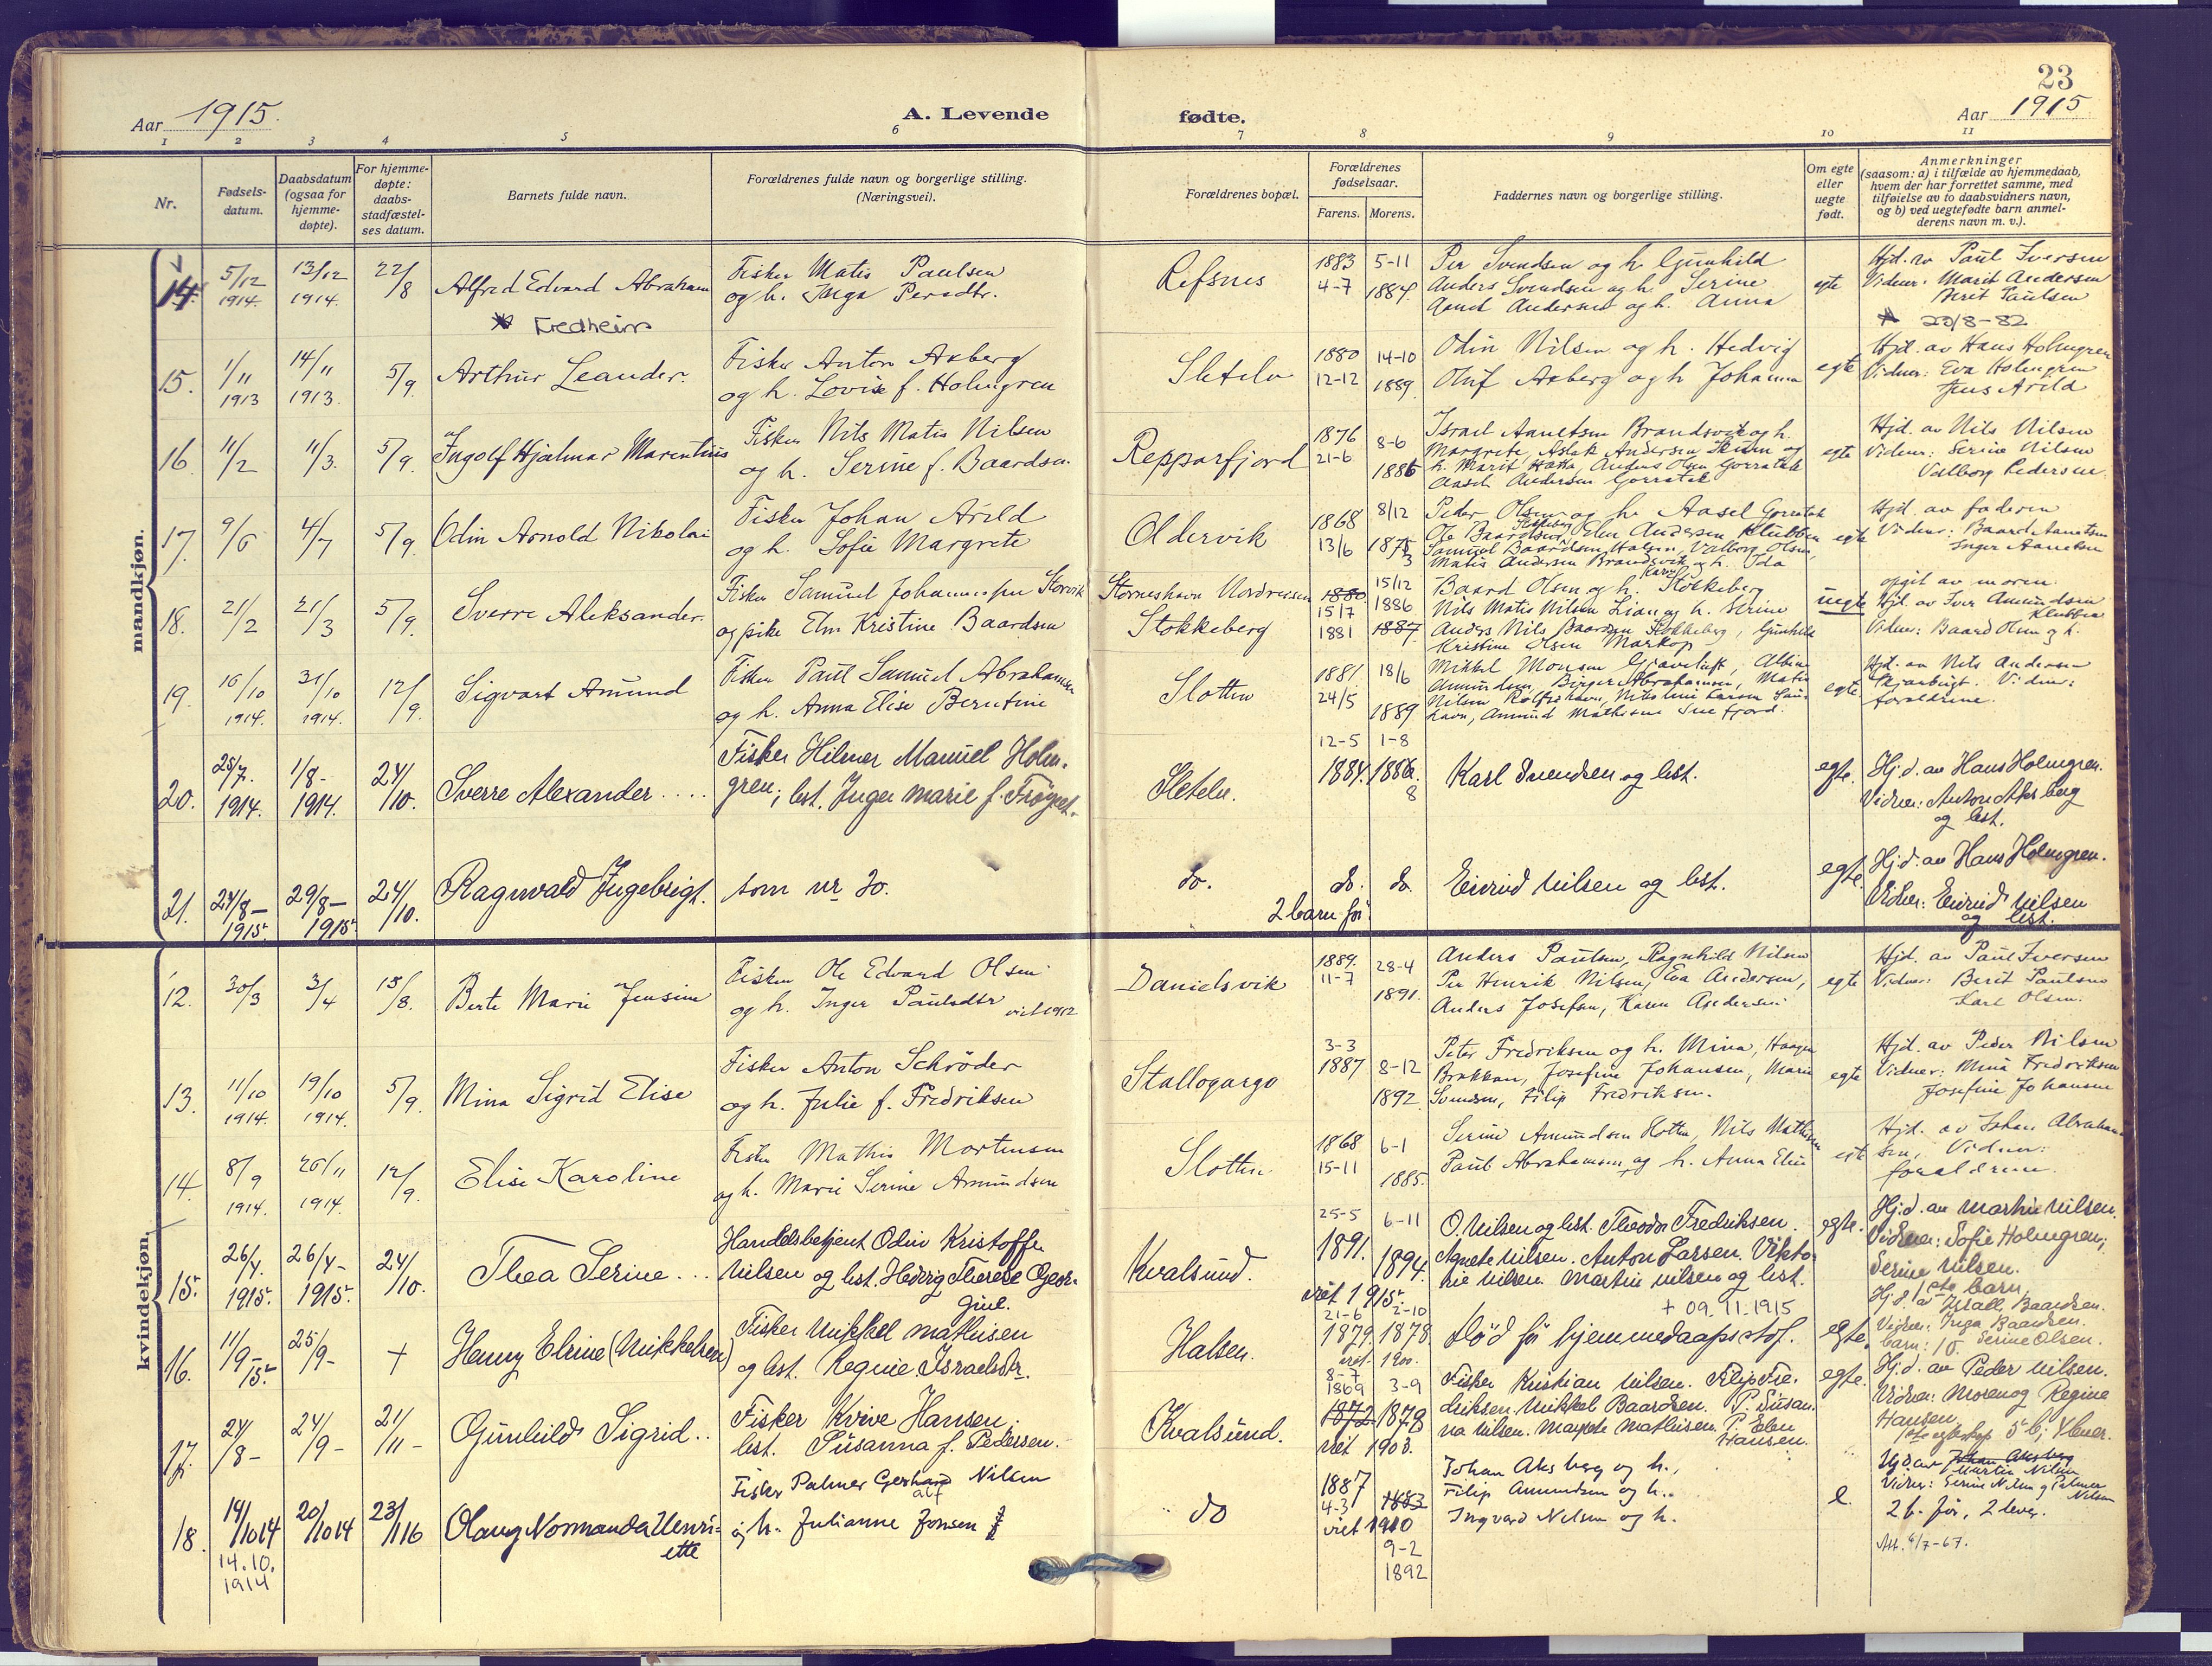 23
Aar 1915.
A. Levende fødte.
Aar 1915
1 2 3 4 5 6 7 8 9 10 11
Nr.
Fødsels-
datum.
Daabsdatum
(ogsaa for
hjemme-
døpte).
For hjemme-
døpte:
daabs-
stadfæstel-
ses datum.
Barnets fulde navn.
Forældrenes fulde navn og borgerlige stilling.
(Næringsvei).
Forældrenes bopæl.
Forældrenes
fødselsaar.
Farens. Morens.
Faddernes navn og borgerlige stilling.
Om egte
eller
uegte
født.
Anmerkninger
(saasom: a) i tilfælde av hjemmedaab,
hvem der har forrettet samme, med
tilføielse av to daabsvidners navn,
og b) ved uegtefødte barn anmel-
derens navn m. v.).
mandkjøn.
14
5/12
1914.
13/12
1914.
22/8
Alfred Edvard Abraham
Fredheim
Fisker Matis Paulsen
og h. Inga Persdtr.
Refsnes
1883
4-7
5-11
1884
Per Svendsen og h. Gunhild
Anders Svendsen og h. Serine
Anders Andersen og h. Anna
egte
Hjd. av Paul Iversen
Vidner: Marit Andersen
Berit Paulsen
20/8-82
15.
1/11
1913
14/11
1913.
5/9.
Arthur Leander.
Fisker Anton Axberg
og h. Lovise f. Holmgren
Sletelv
1880
12-12
14-10
1889
Odin Nilsen og h. Hedvig
Oluf Axberg og h Johanna
egte
Hjd. av Hans Holmgren
Vidner: Eva Holmgren
Jens Arild
16.
11/2
11/3.
5/9.
Ingolf Hjalmar Marentius
Fisker Nils Matis Nilsen
og h. Serine f. Baardsen.
Repparfjord
1876
21-6
8-6
1886
Israel Aanetsen Brandsvik og h.
Margrete, Aslak Andersen Skum og
h. Marit Hætta, Anders Olsen Gorratak
Aasel Andersen Gorratak
egte
Hjd. av Nils Nilsen
Vidner: Serine Nilsen
Valborg Pedersen
17.
9/6
4/7
5/9.
Odin Arnold Nikolai
Fisker Johan Arild
og h. Sofie Margrete
Oldervik
1868
13/6
8/12
1873
Peder Olsen og h. Aasel Gorratak
Ole Baardsen, Elen Andersen Klubben
Samuel Baardsen Halsen, Valborg Olsen,
Matis Andersen Brandsvik og h. Ida
egte
Hjd. av faderen
Vidner: Baard Aanetsen
Inger Aanetsen
18.
21/2
21/3
5/9.
Sverre Aleksander.
Fisker Samuel Johannessen Storvik
og pike Elen Kristine Baardsen
Stokkeberg
1880
15/7
1881
15/12
1886
1887
Baard Olsen og h. Karen Stokkeberg
Nils Matis Nilsen Lian og h. Serine
Anders Nils Baardsen Stokkeberg, Gunhild
Kristine Olsen Markop
uegte
opgit av moren.
Hjd. av Iver Amundsen
Klubben
Vidner: Baard Olsen og h.
19.
16/10
1914.
31/10
1914.
12/9.
Sigvart Amund
Fisker Paul Samuel Abrahamsen
og h. Anna Elise Berntine
Slotten
1881
24/5
18/6
1889
Mikkel Monsen Gjaveluft, Albine
Amundsen, Birger Abrahamsen, Matis
Nilsen Rolfsøhavn, Nikoline Larsen
havn, Amund Mathisen Snefjord.
egte
Hjd. av Nils Andersen
Vidner:
forældrene.
20.
25/7.
1914.
1/8-
1914.
24/10.
Sverre Alexander....
Fisker Hilmer Manuel Holm-
gren; hst. Inger Marie f. Trøgset.
Sletelv.
12-5
1884.
1-8
1886.
8
Karl Svendsen og hst.
egte.
Hj.d. av Hans Holmgren.
Vidner: Anton Aksberg
og hst.
21.
24/8-
1915.
29/8-
1915.
24/10.
Ragnvald Ingebrigt.
som nr 20.
do.
do. do.
2 barn før.
Eivind Nilsen og hst.
egte.
Hj.d. av Hans Holmgren.
Vidner: Eivind Nilsen
og hst.
kvindekjøn.
12.
30/3
3/4
15/8.
Berte Marie Jensine
Fisker Ole Edvard Olsen
og h. Inger Paulsdtr viet 1912
Danielsvik
1889.
11-7
28-4
1891.
Anders Paulsen, Ragnhild Nilsen
Per Henrik Nilsen, Eva Andersen,
Anders Josefsen, Karen Andersen
egte
Hjd. av Paul Iversen
Vidner: Berit Paulsen
Karl Olsen.
13.
11/10
1914.
19/10
1914.
5/9.
Mina Sigrid Elise
Fisker Anton Schrøder
og h. Julie f. Fredriksen
Stallogargo
3-3
1887
8-12
1892
Peter Fredriksen og h. Mina, Haagen
Brekkan, Josefine Johansen, Marie
Svendsen, Filip Fredriksen.
egte
Hjd. av Peder Nilsen
Vidner: Mina Fredriksen
Josefine Johansen
14.
8/9
1914.
1914.
12/9.
Elise Karoline
Fisker Mathis Mortensen
og h. Marie Serine Amundsen
Slotten
1868
15-11
6-1
1885.
Serine Amundsen Slotten, Nils Mathisen
Paul Abrahamsen og h. Anna Elise
egte
Hjd. av Johan Abraham-
sen, Vidner:
forældrene.
15.
26/4.
1915.
26/4-
1915.
24/10.
Thea Serine...
Handelsbetjent Odin Kristoffer
Nilsen og hst. Hedvig Therese Geor-
gine.
Kvalsund.
25-5
1891.
6-11
1894.
viet 1915.
O. Nilsen og hst. Theodor Fredriksen.
Agnete Nilsen. Anton Larsen. Vikto-
rie Nilsen. Martin Nilsen og hst.
egte.
Hj.d. av Martin Nilsen.
Vidner: Sofie Holmgren;
Serine Nilsen.
1ste barn.
16.
11/9-15.
25/9-
+
Henny Elrine (Mikkelsen)
Fisker Mikkel Mathisen
og hst. Regine Israelsdtr.
Halsen.
21-6
1879.
2-10
1878.
viet 1900.
+ 09.11.1915
død før hjemmedaapsstaf.
egte.
Hj.d. av Israel Baardsen.
Vidner: Inga Baardsen.
Serine Olsen.
17.
24/8-
24/9-
21/11-
Gunhild Sigrid..
Fisker Kvive Hansen
hst. Susanna f. Pedersen.
Kvalsund.
8-7
1869
1872
3-9
1878
viet 1903.
Fisker Kristian Nilsen. Filip Fre-
driksen. Mikkel Baardsen. P. Susan-
na Nilsen. Margrete Mathisen. P. Elen
Hansen.
egte.
Hj.d. av Peder Nilsen.
Vidner: Moren og Regine
Hansen.
5 b; 4 lever.
18.
14/10 14
14.10.
1914
20/10 14
23/1 16
Olaug Normanda Henri-
ette
Fisker Palmer Gerhard Nilsen
og h. Julianne Jonsen
do
1887
4-3
1883
viet 1910
9-2
1892
Johan Aksberg og h.,
Filip Amundsen og h..
Ingvard Nilsen og h.
e.
Hjd av Johan Aksberg
Martin Nilsen
Vidner: Serine Nilsen og Palmer
Nilsen
2 b. før, 2 lever.
Att. 4/7-67.